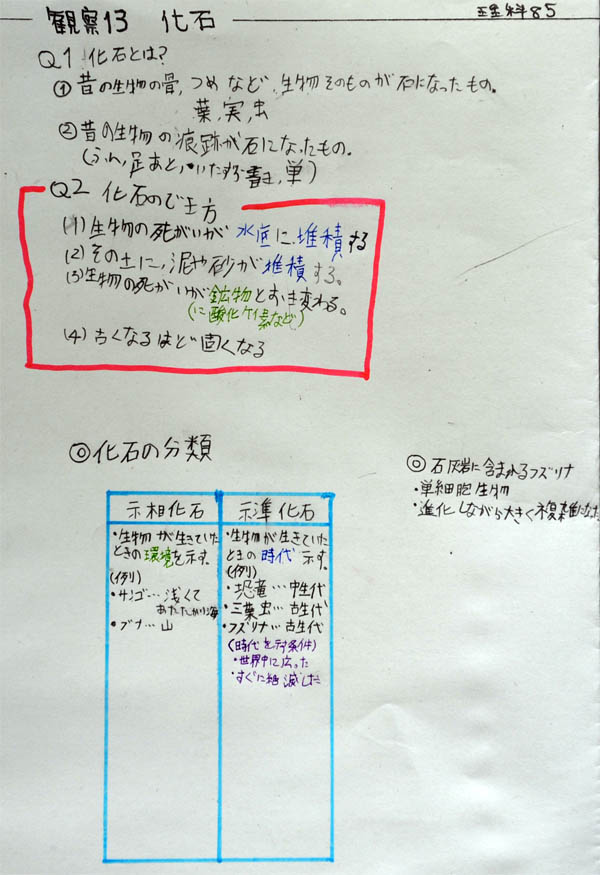 観察13 化石
理科85
Q1 化石とは?
①昔の生物の骨,つめなど,生物そのものが石になったもの。
葉,実,虫
②昔の生物の痕跡が石になったもの。
(ふん,足あと,
Q2 化石のでき方
(1)生物の死がいが水底に堆積する
(2)その上に,泥や砂が堆積する。
(3)生物の死がいが鉱物とおき変わる。
(に酸化ケイ素など)
(4)古くなるほど固くなる
◎化石の分類
示相化石
・生物が生きていた
ときの環境を示す。
(例)
・サンゴ…浅くて
あたたかい海
・ブナ…山
示準化石
・生物が生きていた
ときの時代示す。
(例)
・恐竜…中生代
・三葉虫…古生代
・フズリナ…古生代
(時代を示す条件)
・世界中に広った
・すぐに絶滅した
◎石灰岩に含まれるフズリナ
・単細胞生物
・進化しながら大きく複雑になった